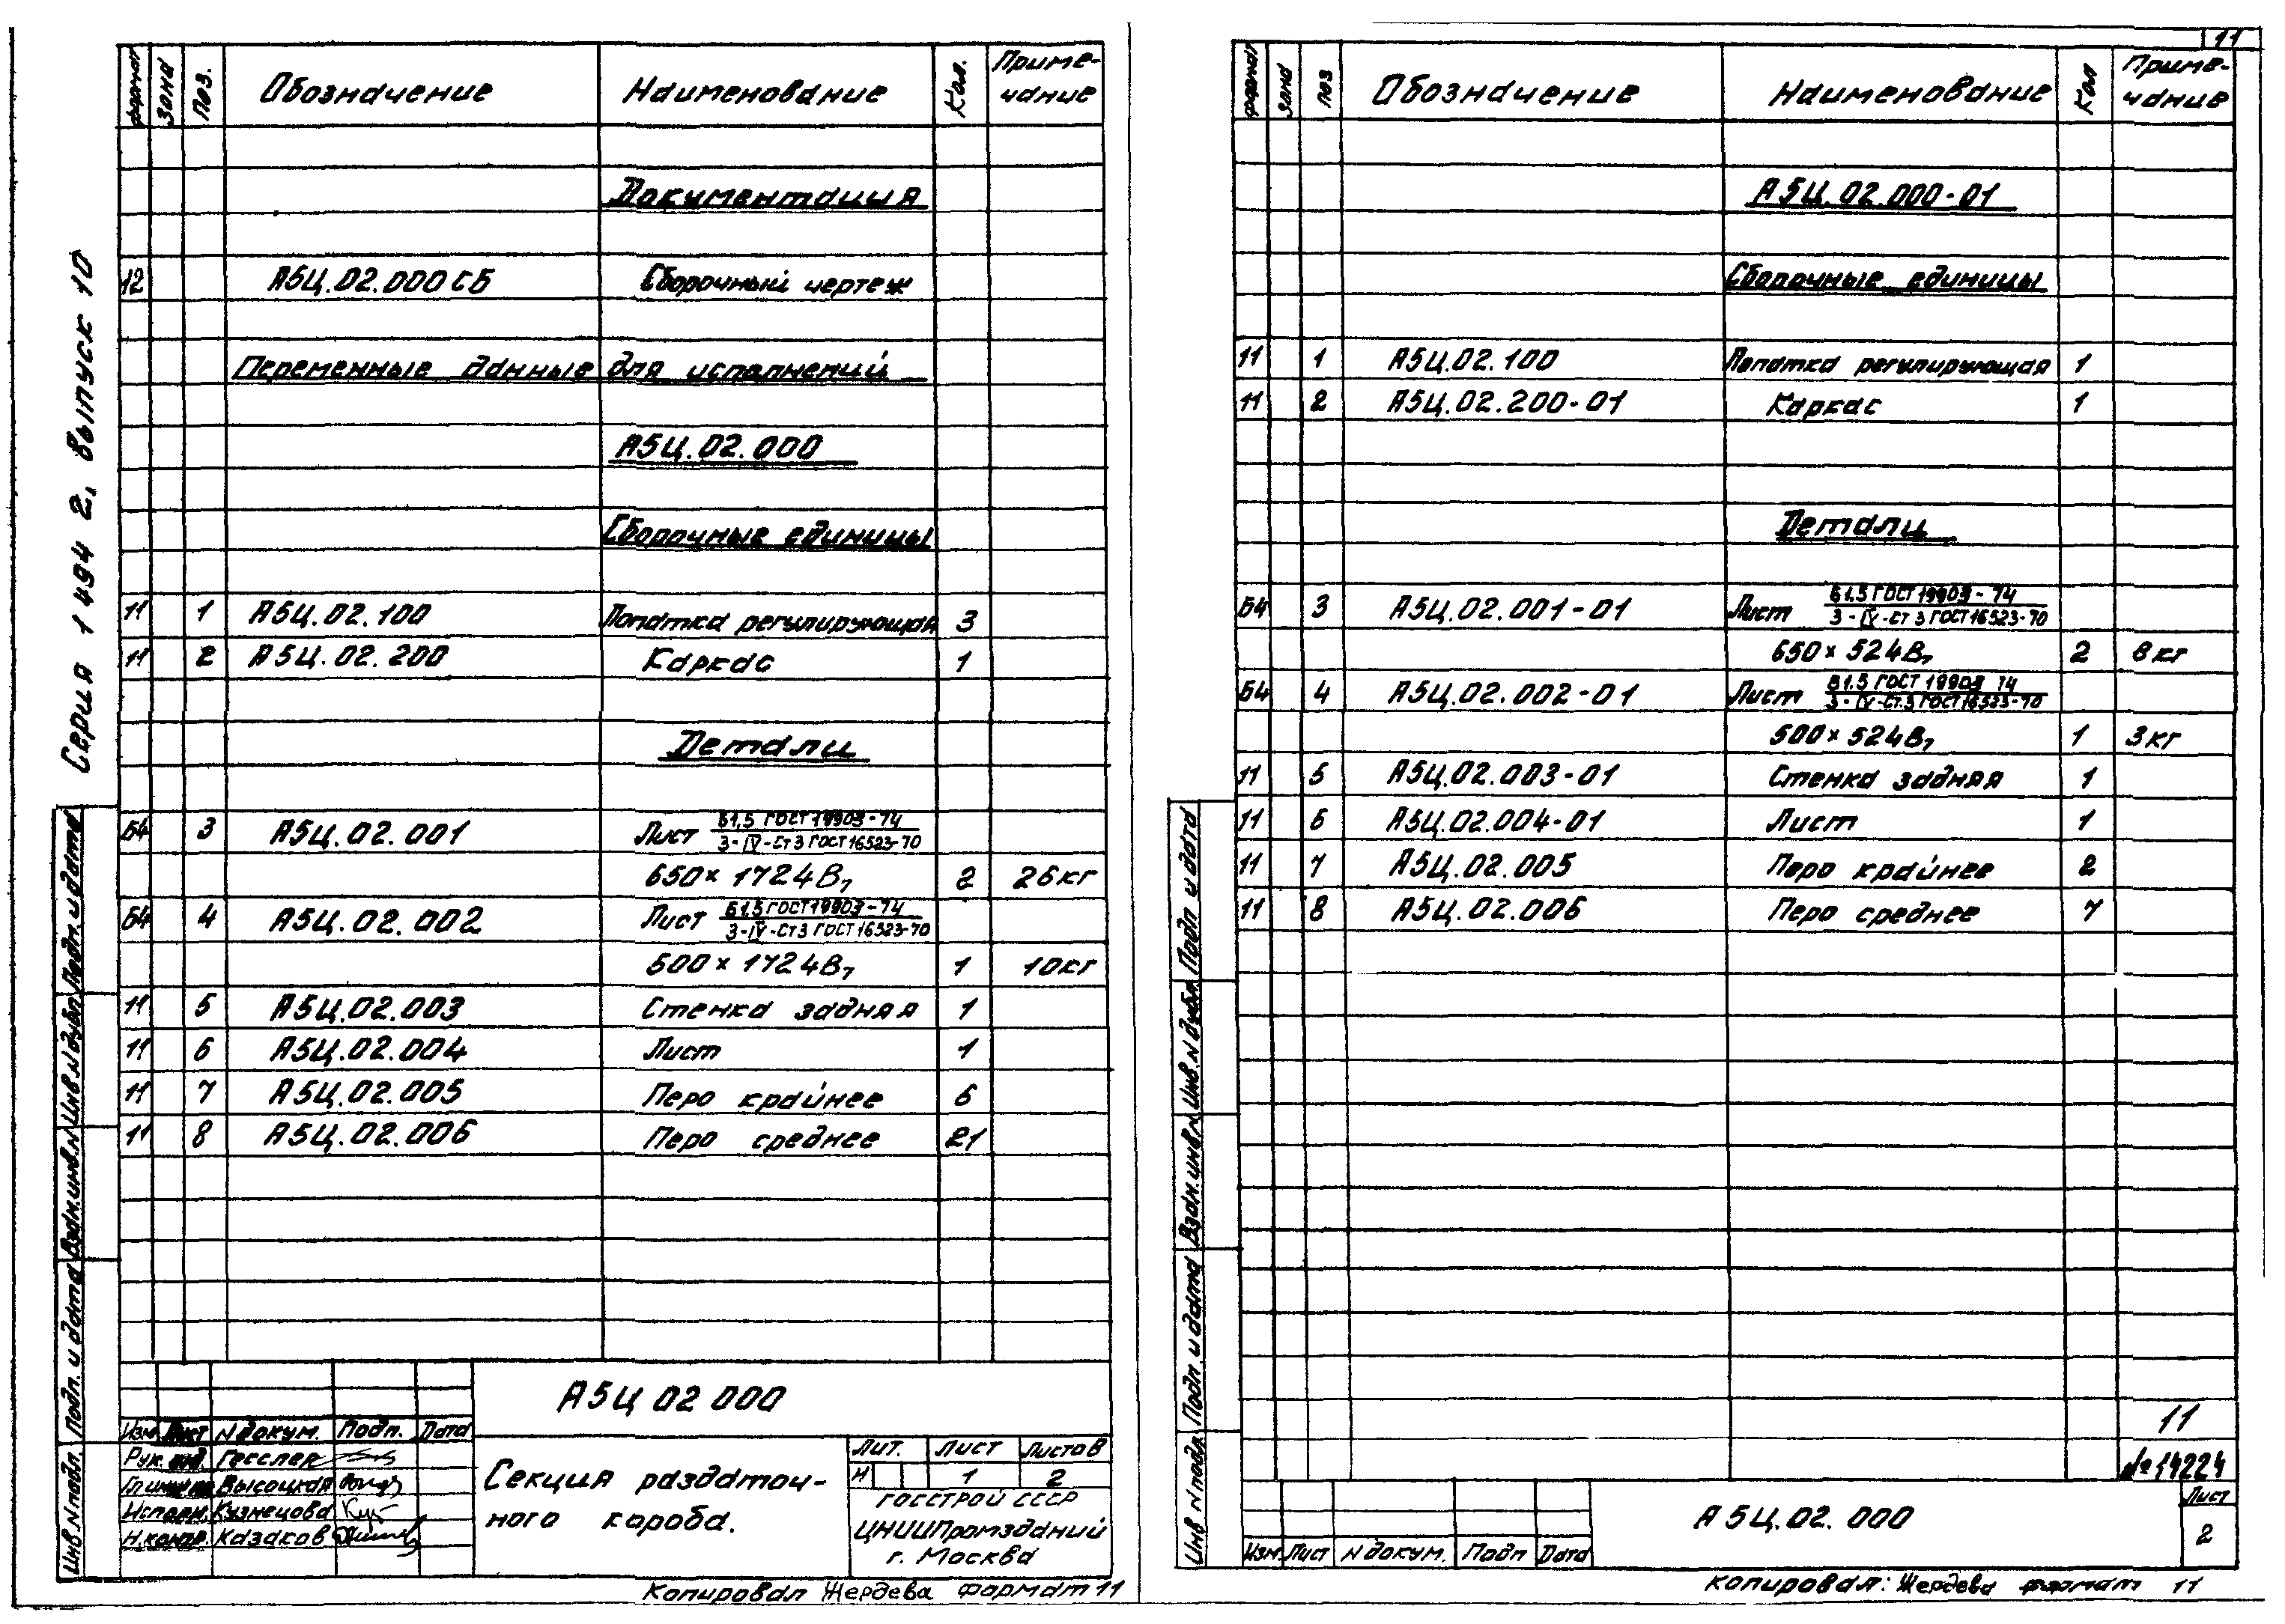 Серия 1494 2, выпуск 10
формат Зона Поз. Обозначение Наименование Кол. Приме-
чание
Документация
12 А5Ц.02.000СБ Сборочный чертеж
Переменные данные для исполнений
А5Ц.02.000
Сборочные единицы
11 1 А5Ц.02.100 Лопатка регулирующая 3
11 2 А5Ц.02.200 Каркас 1
Детали
Б4 3 А5Ц.02.001 Лист Б1,5 ГОСТ 19903-74
3-IV-Ст3 ГОСТ 16523-70
650×1724В7 2 26кг
Б4 4 А5Ц.02.002 Лист Б1,5 ГОСТ 19903-74
3-IV-Ст3 ГОСТ 16523-70
500×1724В7 1 10кг
11 5 А5Ц.02.003 Стенка задняя 1
11 6 А5Ц.02.004 Лист 1
11 7 А5Ц.02.005 Перо крайнее 6
11 8 А5Ц.02.006 Перо среднее 21
Инв.N подл. Подп. и дата Взам.инв.N Инв.N дубл. Подп. и дата
Изм Лист N докум. Подп. Дата
Рук. Гесслер
Высоцкая
Исполн. Кузнецова
Н.контр. Казаков
А5Ц 02 000
Секция раздаточ-
ного короба.
Лит. Лист Листов
И 1 2
ГОССТРОЙ СССР
ЦНИИПромзданий
г. Москва
Копировал Жердева формат 11
11
формат Зона Поз Обозначение Наименование Кол Приме-
чание
А5Ц.02.000-01
Сборочные единицы
11 1 А5Ц.02.100 Лопатка регулирующая 1
11 2 А5Ц.02.200-01 Каркас 1
Детали
Б4 3 А5Ц.02.001-01 Лист Б1.5 ГОСТ 19903-74
3-IV-Ст3 ГОСТ 16523-70
650×524В7 2 8кг
Б4 4 А5Ц.02.002-01 Лист Б1.5 ГОСТ 19903 74
3-IV-Ст.3 ГОСТ 16523-70
500×524В7 1 3кг
11 5 А5Ц.02.003-01 Стенка задняя 1
11 6 А5Ц.02.004-01 Лист 1
11 7 А5Ц.02.005 Перо крайнее 2
11 8 А5Ц.02.006 Перо среднее 7
11
№14224
Инв N подл. Подп и дата Взам.инв.N Инв.N дубл. Подп и дата
Изм Лист N докум. Подп Дата
А5Ц.02.000
Лист
2
Копировал: Жердева формат 11